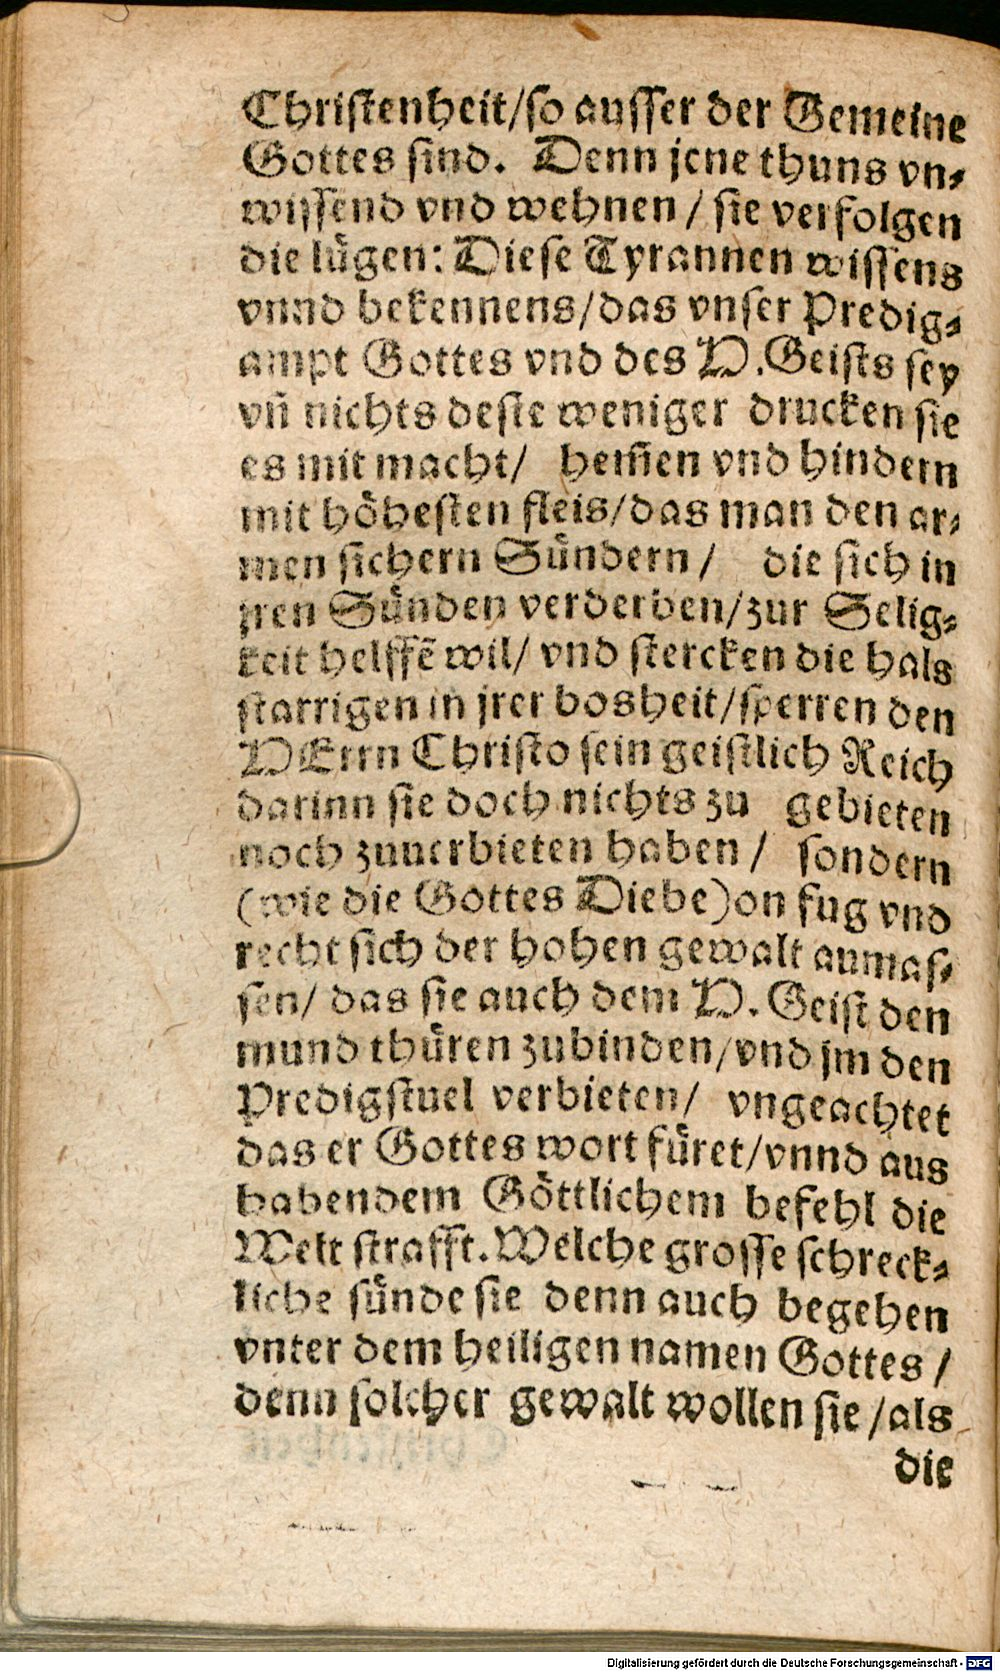 Christenheit/so ausser der Gemeine
Gottes sind. Denn jene thuns vn-
wissend vnd wehnen / sie verfolgen
die lügen: Diese Tyrannen wissens
vnnd bekennens/das vnser Predig-
ampt Gottes vnd des H.Geists sey
vñ nichts deste weniger drucken sie
es mit macht/ hem̃en vnd hindern
mit höhesten fleis/das man den ar-
men sichern Sündern / die sich in
jren Sünden verderben/zur Selig-
keit helffẽ wil/ vnd stercken die hals
starrigen in jrer bosheit/sperren den
HErrn Christo sein geistlich Reich
darinn sie doch nichts zu gebieten
noch zuuerbieten haben / sondern
(wie die Gottes Diebe)on fug vnd
recht sich der hohen gewalt anmas-
sen/ das sie auch dem H. Geist den
mund thüren zubinden/vnd jm den
Predigstuel verbieten/ vngeachtet
das er Gottes wort füret/vnnd aus
habendem Göttlichem befehl die
Welt strafft. Welche grosse schreck-
liche sünde sie denn auch begehen
vnter dem heiligen namen Gottes /
denn solcher gewalt wollen sie /als
die
Digitalisierung gefördert durch die Deutsche Forschungsgemeinschaft - DFG